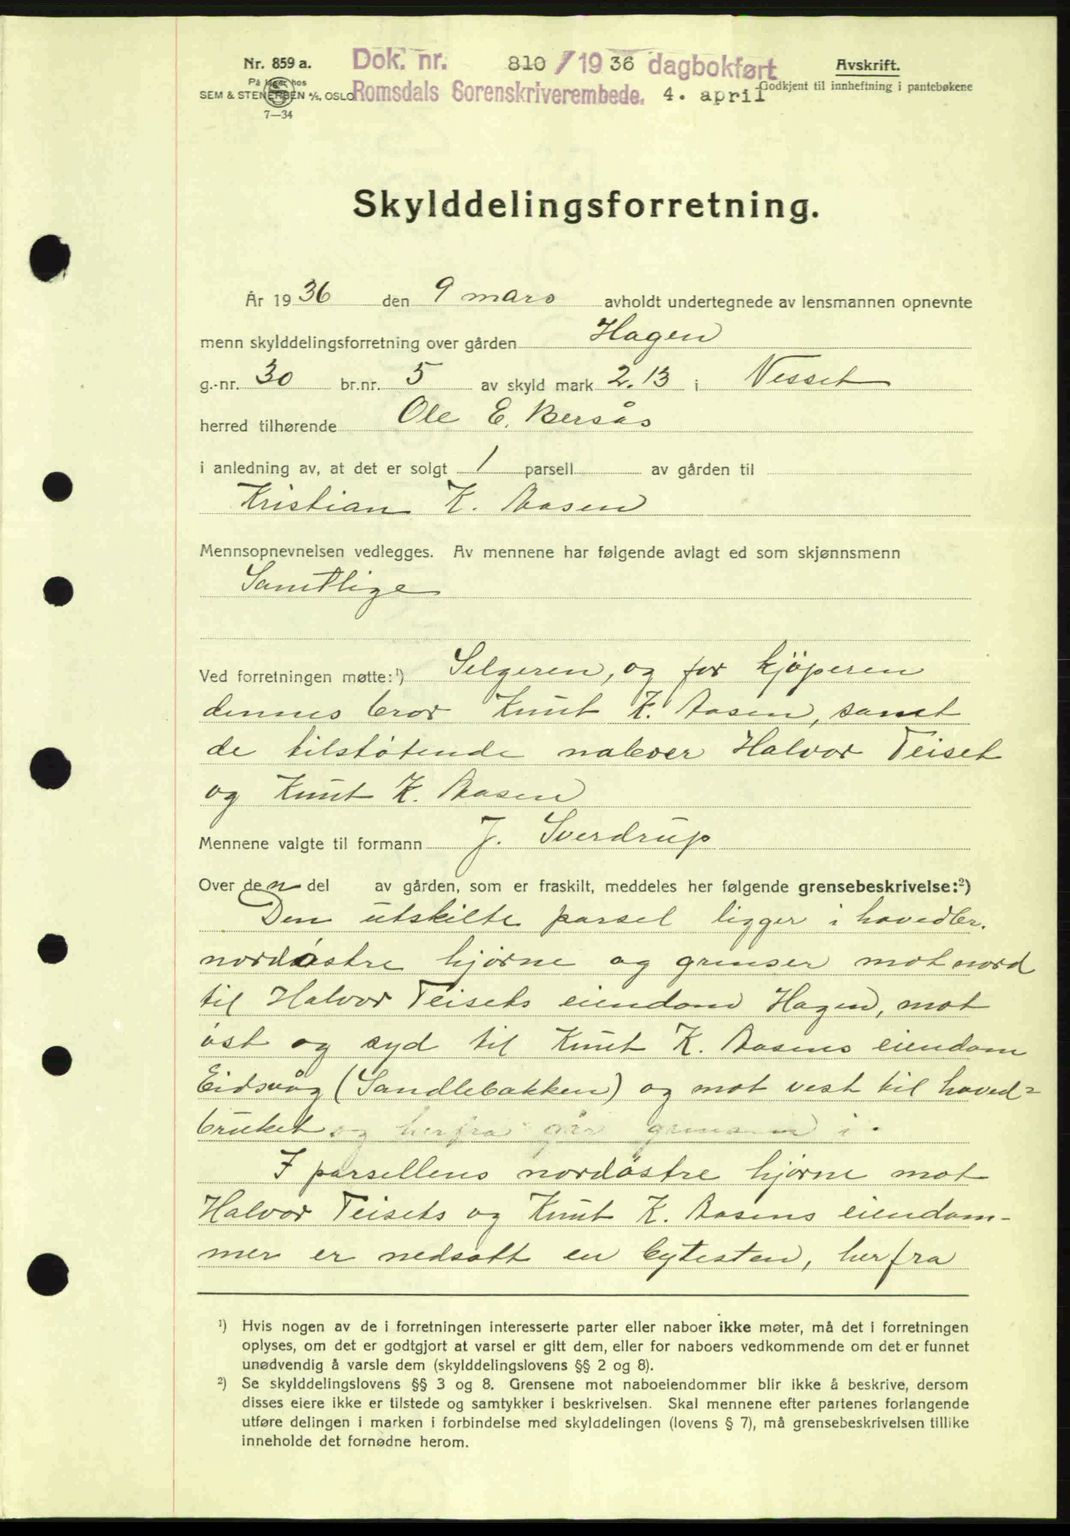 Nr. 859 a.
På lager hos
SEM & STENERSEN A/S, OSLO
7—34
Dok. nr. 810 / 1936 dagbokført
Romsdals Sorenskriverembede. 4. april
Avskrift.
Godkjent til innheftning i pantebøkene
Skylddelingsforretning.
År 1936 den 9 mars avholdt undertegnede av lensmannen opnevnte
menn skylddelingsforretning over gården Hagen
g.-nr. 30 br.nr. 5 av skyld mark 2.13 i Nesset
herred tilhørende Ole E. Bersås
i anledning av, at det er solgt 1 parsell av gården til
Kristian K. Aasen
Mennsopnevnelsen vedlegges. Av mennene har følgende avlagt ed som skjønnsmenn
Samtlige
Ved forretningen møtte:¹) Selgeren, og for kjöperen
dennes bror Knut K. Aasen, samt
de tilstøtende naboer Halvor Teiset
og Knut K. Aasen
Mennene valgte til formann J. Sverdrup
Over den del av gården, som er fraskilt, meddeles her følgende grensebeskrivelse:²)
Den utskilte parsel ligger i hovedbr.
nordöstre hjørne og grenser mot nord
til Halvor Teisets eiendom Hagen, mot
öst og syd til Knut K. Aasens eiendom
Eidsvåg (Sandlebakken) og mot vest til hoved-
bruket og herfra går grensen i.
I parsellens nordöstre hjørne mot
Halvor Teisets og Knut K. Aasens eiendom-
mer er nedsatt en bytesten, herfra
¹) Hvis nogen av de i forretningen interesserte parter eller naboer ikke møter, må det i forretningen
oplyses, om det er godtgjort at varsel er gitt dem, eller for naboers vedkommende om det er funnet
unødvendig å varsle dem (skylddelingslovens §§ 2 og 8).
²) Se skylddelingslovens §§ 3 og 8. Grensene mot naboeiendommer blir ikke å beskrive, dersom
disses eiere ikke er tilstede og samtykker i beskrivelsen. Skal mennene efter partenes forlangende
utføre delingen i marken i forbindelse med skylddelingen (lovens § 7), må grensebeskrivelsen tillike
inneholde det fornødne herom.